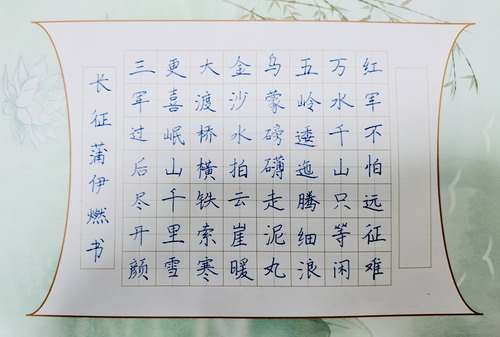 红军不怕远征难
万水千山只等闲
五岭逶迤腾细浪
乌蒙磅礴走泥丸
金沙水拍云崖暖
大渡桥横铁索寒
更喜岷山千里雪
三军过后尽开颜
长征蒲伊燃书